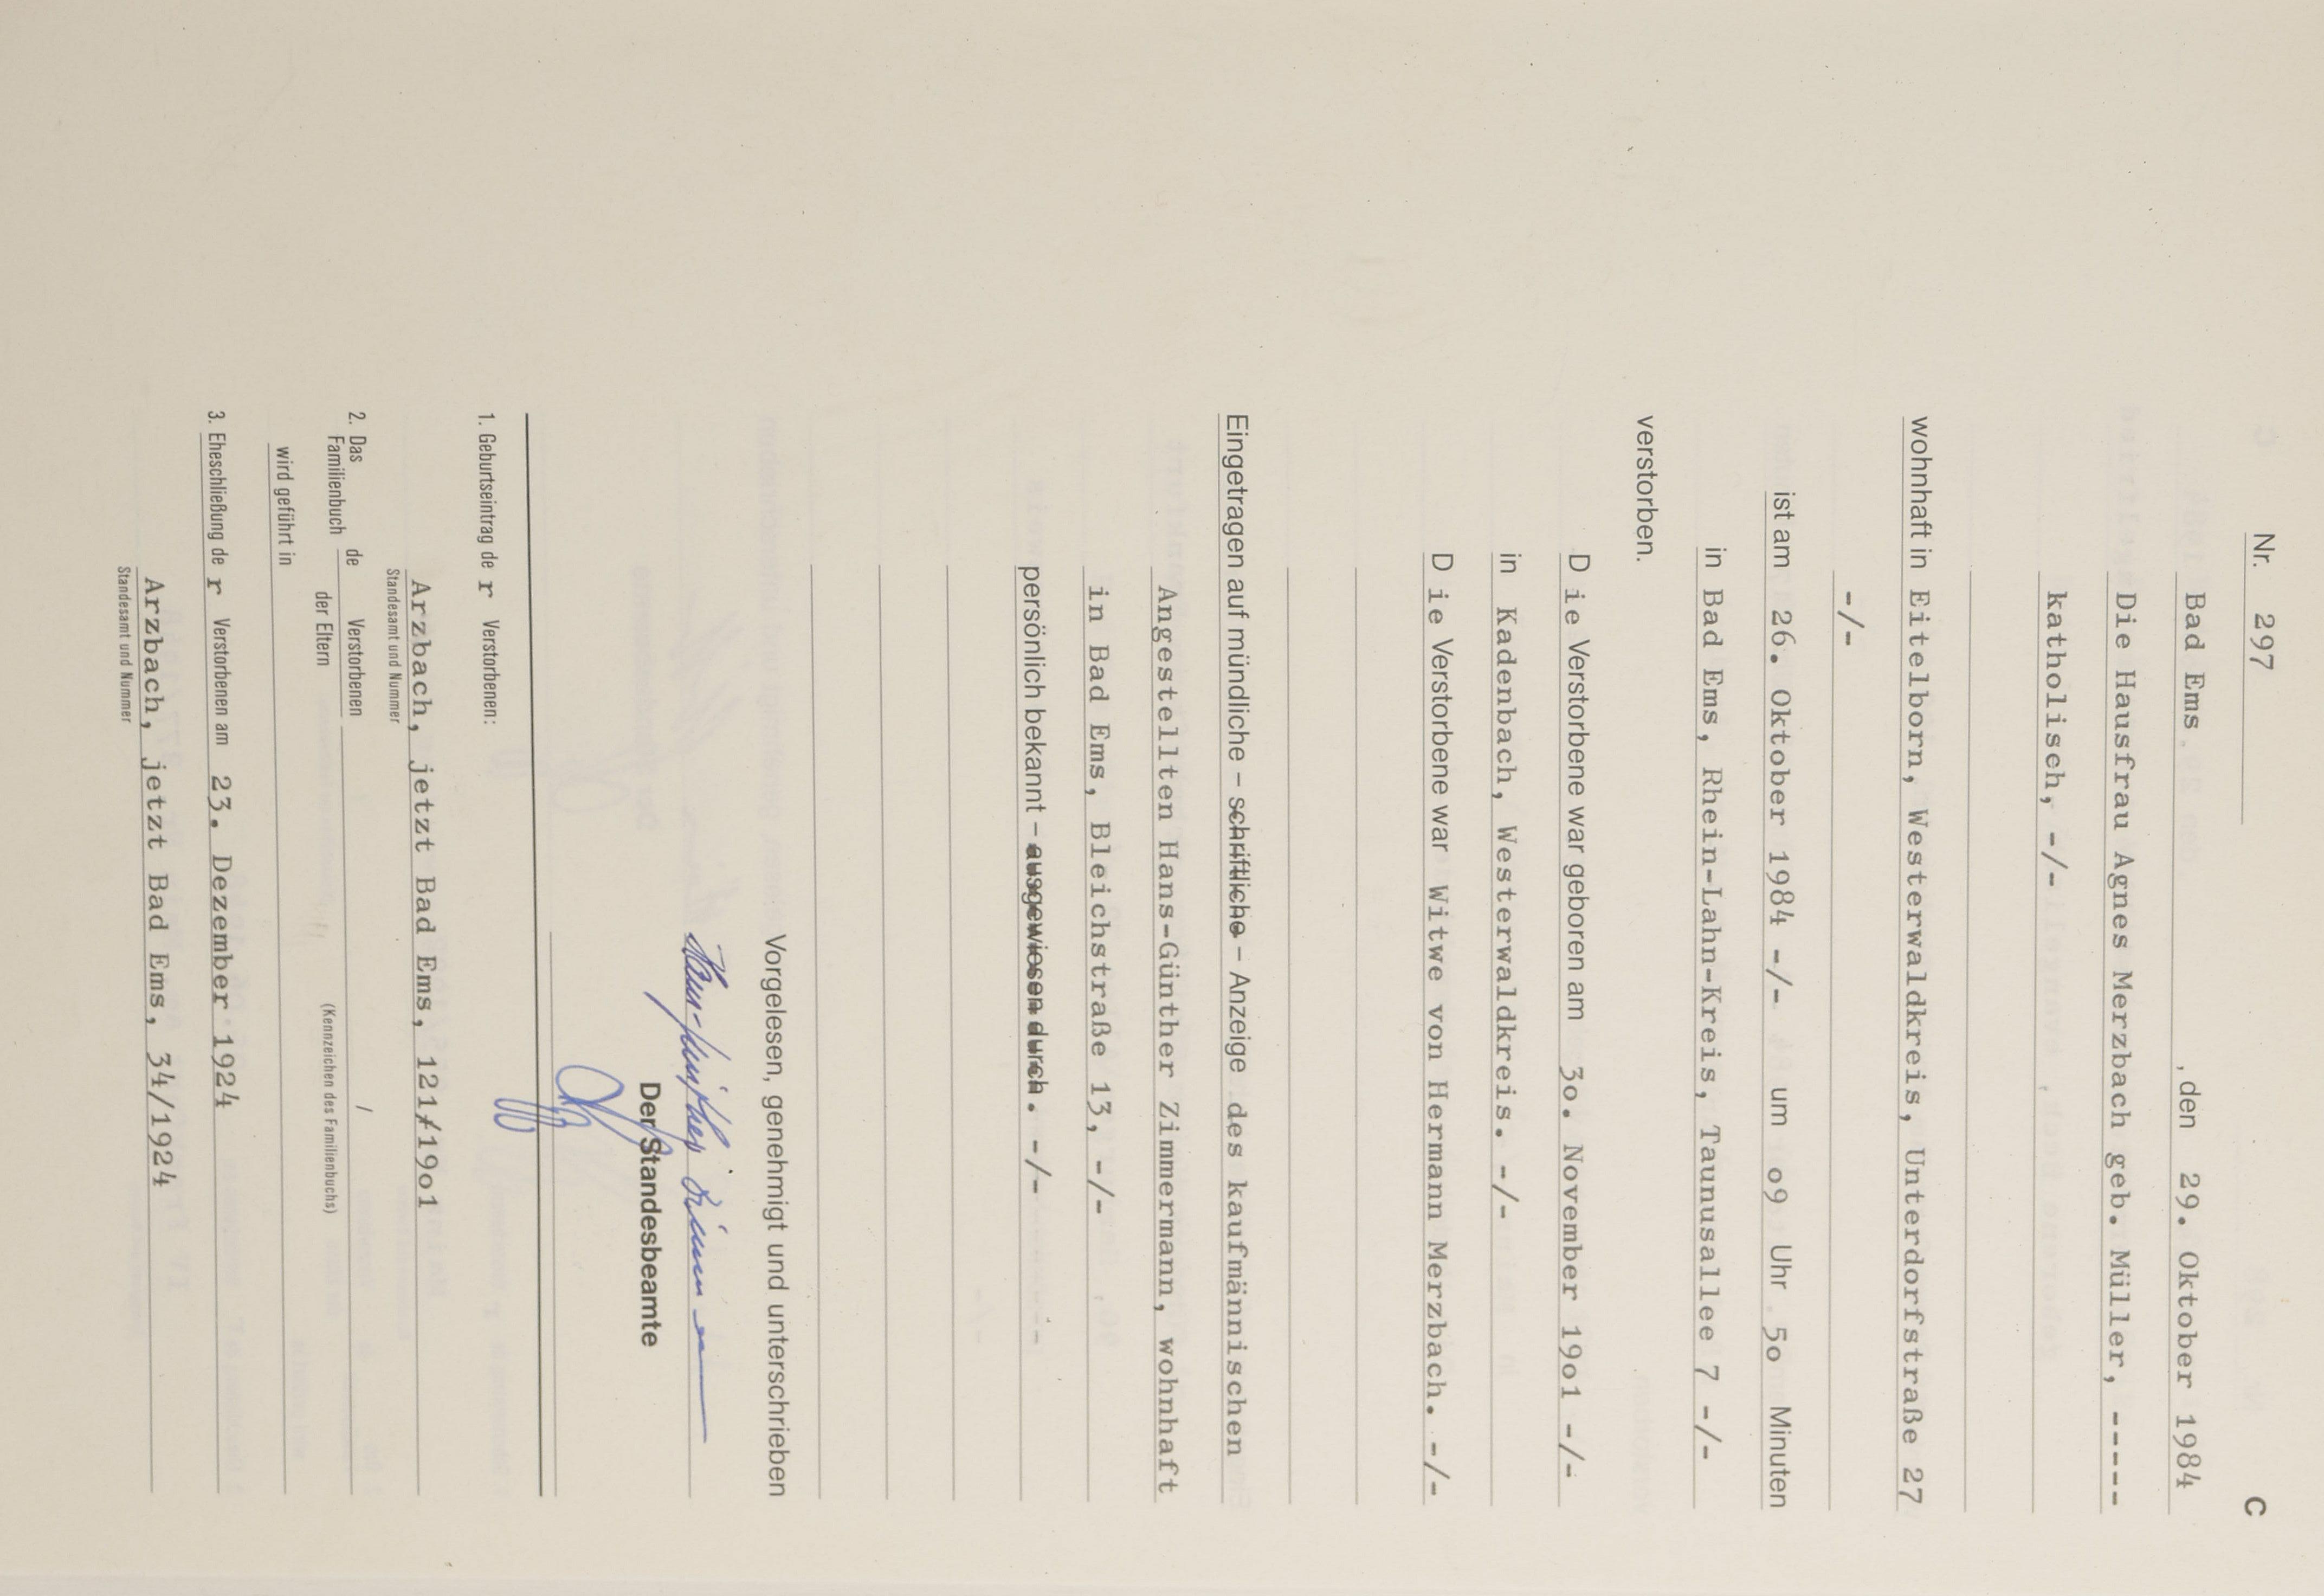 Nr. 297 C
Bad Ems , den 29. Oktober 1984
Die Hausfrau Agnes Merzbach geb. Müller, -----
katholisch, -/-
wohnhaft in Eitelborn, Westerwaldkreis, Unterdorfstraße 27
-/-
ist am 26. Oktober 1984 -/- um o9 Uhr 5o Minuten
in Bad Ems, Rhein-Lahn-Kreis, Taunusallee 7 -/-
verstorben.
D ie Verstorbene war geboren am 3o. November 19o1 -/-
in Kadenbach, Westerwaldkreis. -/-
D ie Verstorbene war Witwe von Hermann Merzbach. -/-
Eingetragen auf mündliche – schriftliche – Anzeige des kaufmännischen
Angestellten Hans-Günther Zimmermann, wohnhaft
in Bad Ems, Bleichstraße 13, -/-
persönlich bekannt – ausgewiesen durch. -/-
Vorgelesen, genehmigt und unterschrieben
Hans-Günther Zimmermann
Der Standesbeamte
1. Geburtseintrag de r Verstorbenen:
Arzbach, jetzt Bad Ems, 121/19o1
Standesamt und Nummer
2. Das Familienbuch de Verstorbenen der Eltern /
(Kennzeichen des Familienbuchs)
wird geführt in
3. Eheschließung de r Verstorbenen am 23. Dezember 1924
Arzbach, jetzt Bad Ems, 34/1924
Standesamt und Nummer